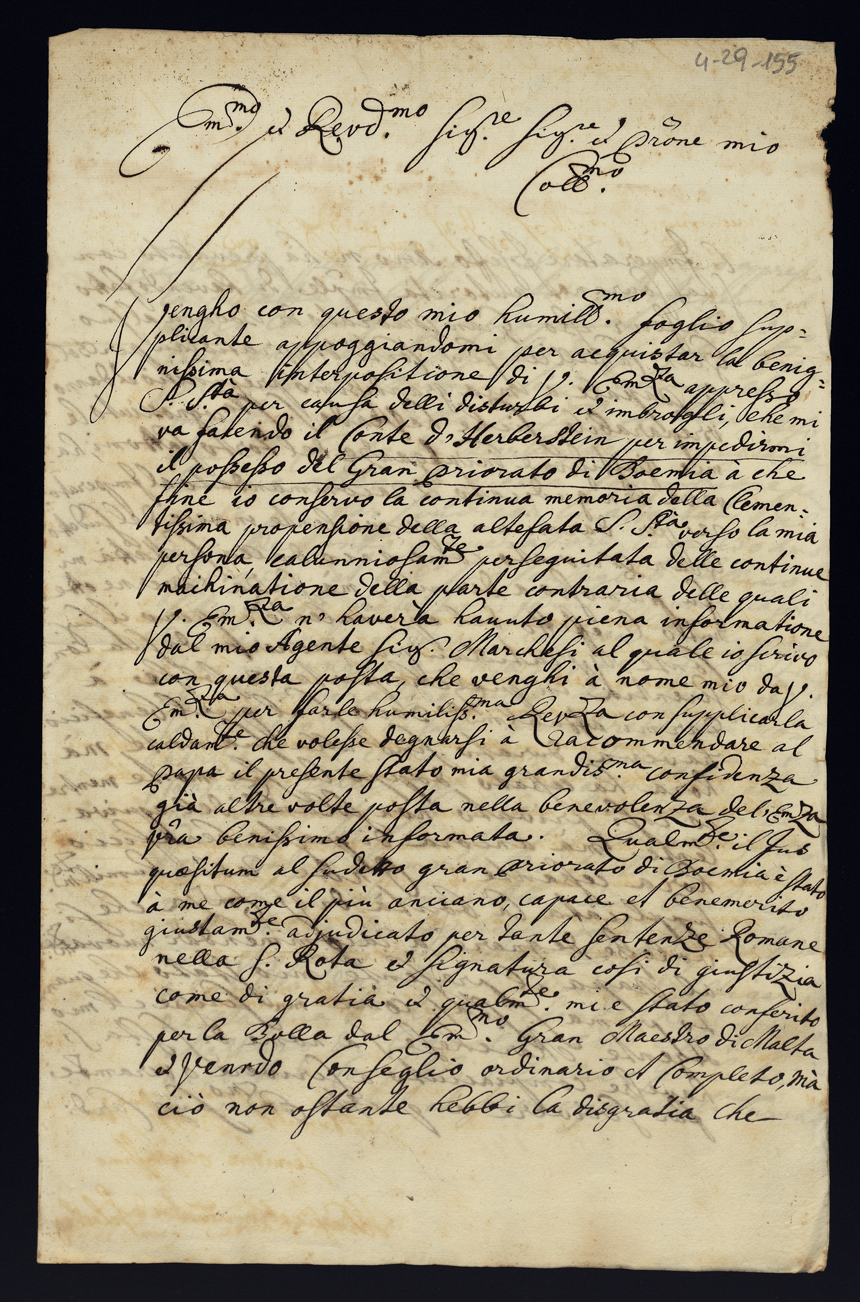 4-29-155
Em.mo et Revd.mo Sig.re Sig.re et Prone mio
Coll.mo
Vengho con questo mio humill.mo foglio sup-
plicante appoggiandomi per acquistar la benig-
nissima interpositione di V. Em.za appresso
S. S.tà per causa delli disturbi et imbrogli, che mi
va facendo il Conte d'Herberstein per impedirmi
il possesso del Gran Priorato di Boemia à che
fine io conservo la continua memoria della Clemen-
tissima propensione della altefata S. S.tà verso la mia
persona, calunniosam.te perseguitata delle continue
machinatione della parte contraria delle quali
V. Em.za n' haverà hauuto piena informatione
dal mio Agente Sig. Marchesi al quale io scrivo
con questa posta, che venghi à nome mio da V.
Em.za per farle humiliss.ma Rev.za con supplicarla
caldam.te che volesse degnarsi à raccommendare al
Papa il presente stato mia grandis.ma confidenza
già altre volte posta nella benevolenza del' Emza
Vra benissimo informata. Qualm.te il Jus
quæsitum al sudetto gran Priorato di Boemia è stato
à me come il più anciano, capace et benemerito
giustam.te adjudicato per tante sentenze Romane
nella S. Rota et Signatura cosi di giustizia
come di gratia et qualm.te mi e stato conferito
per la Bolla dal Em.mo Gran Maestro di Malta
et Venrdo Conseglio ordinario et Completo, mà
ciò non ostante hebbi la disgratia che